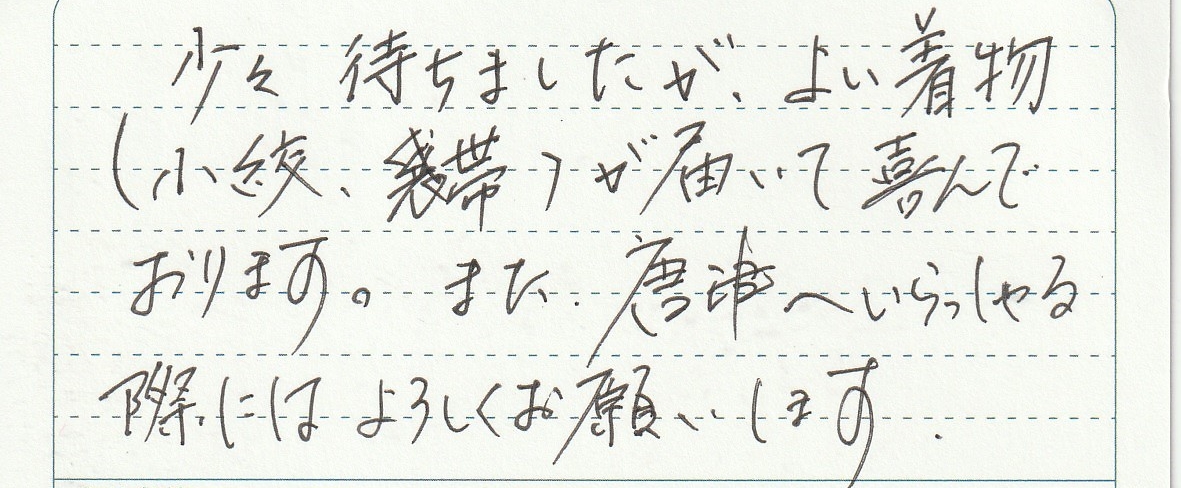 少々 待ちましたが、よい着物
(小紋、袋帯)が届いて喜んで
おります。また、唐津へいらっしゃる
際にはよろしくお願いします.